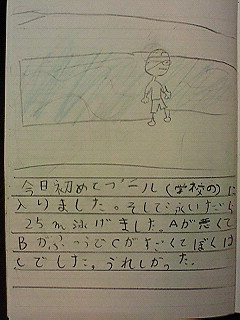 今日初めてプール(学校の)に
入りました。そして泳いだら
25m泳げました。Aが悪くて
BがふつうでCがすごくてぼくは
Cでした。うれしかった。